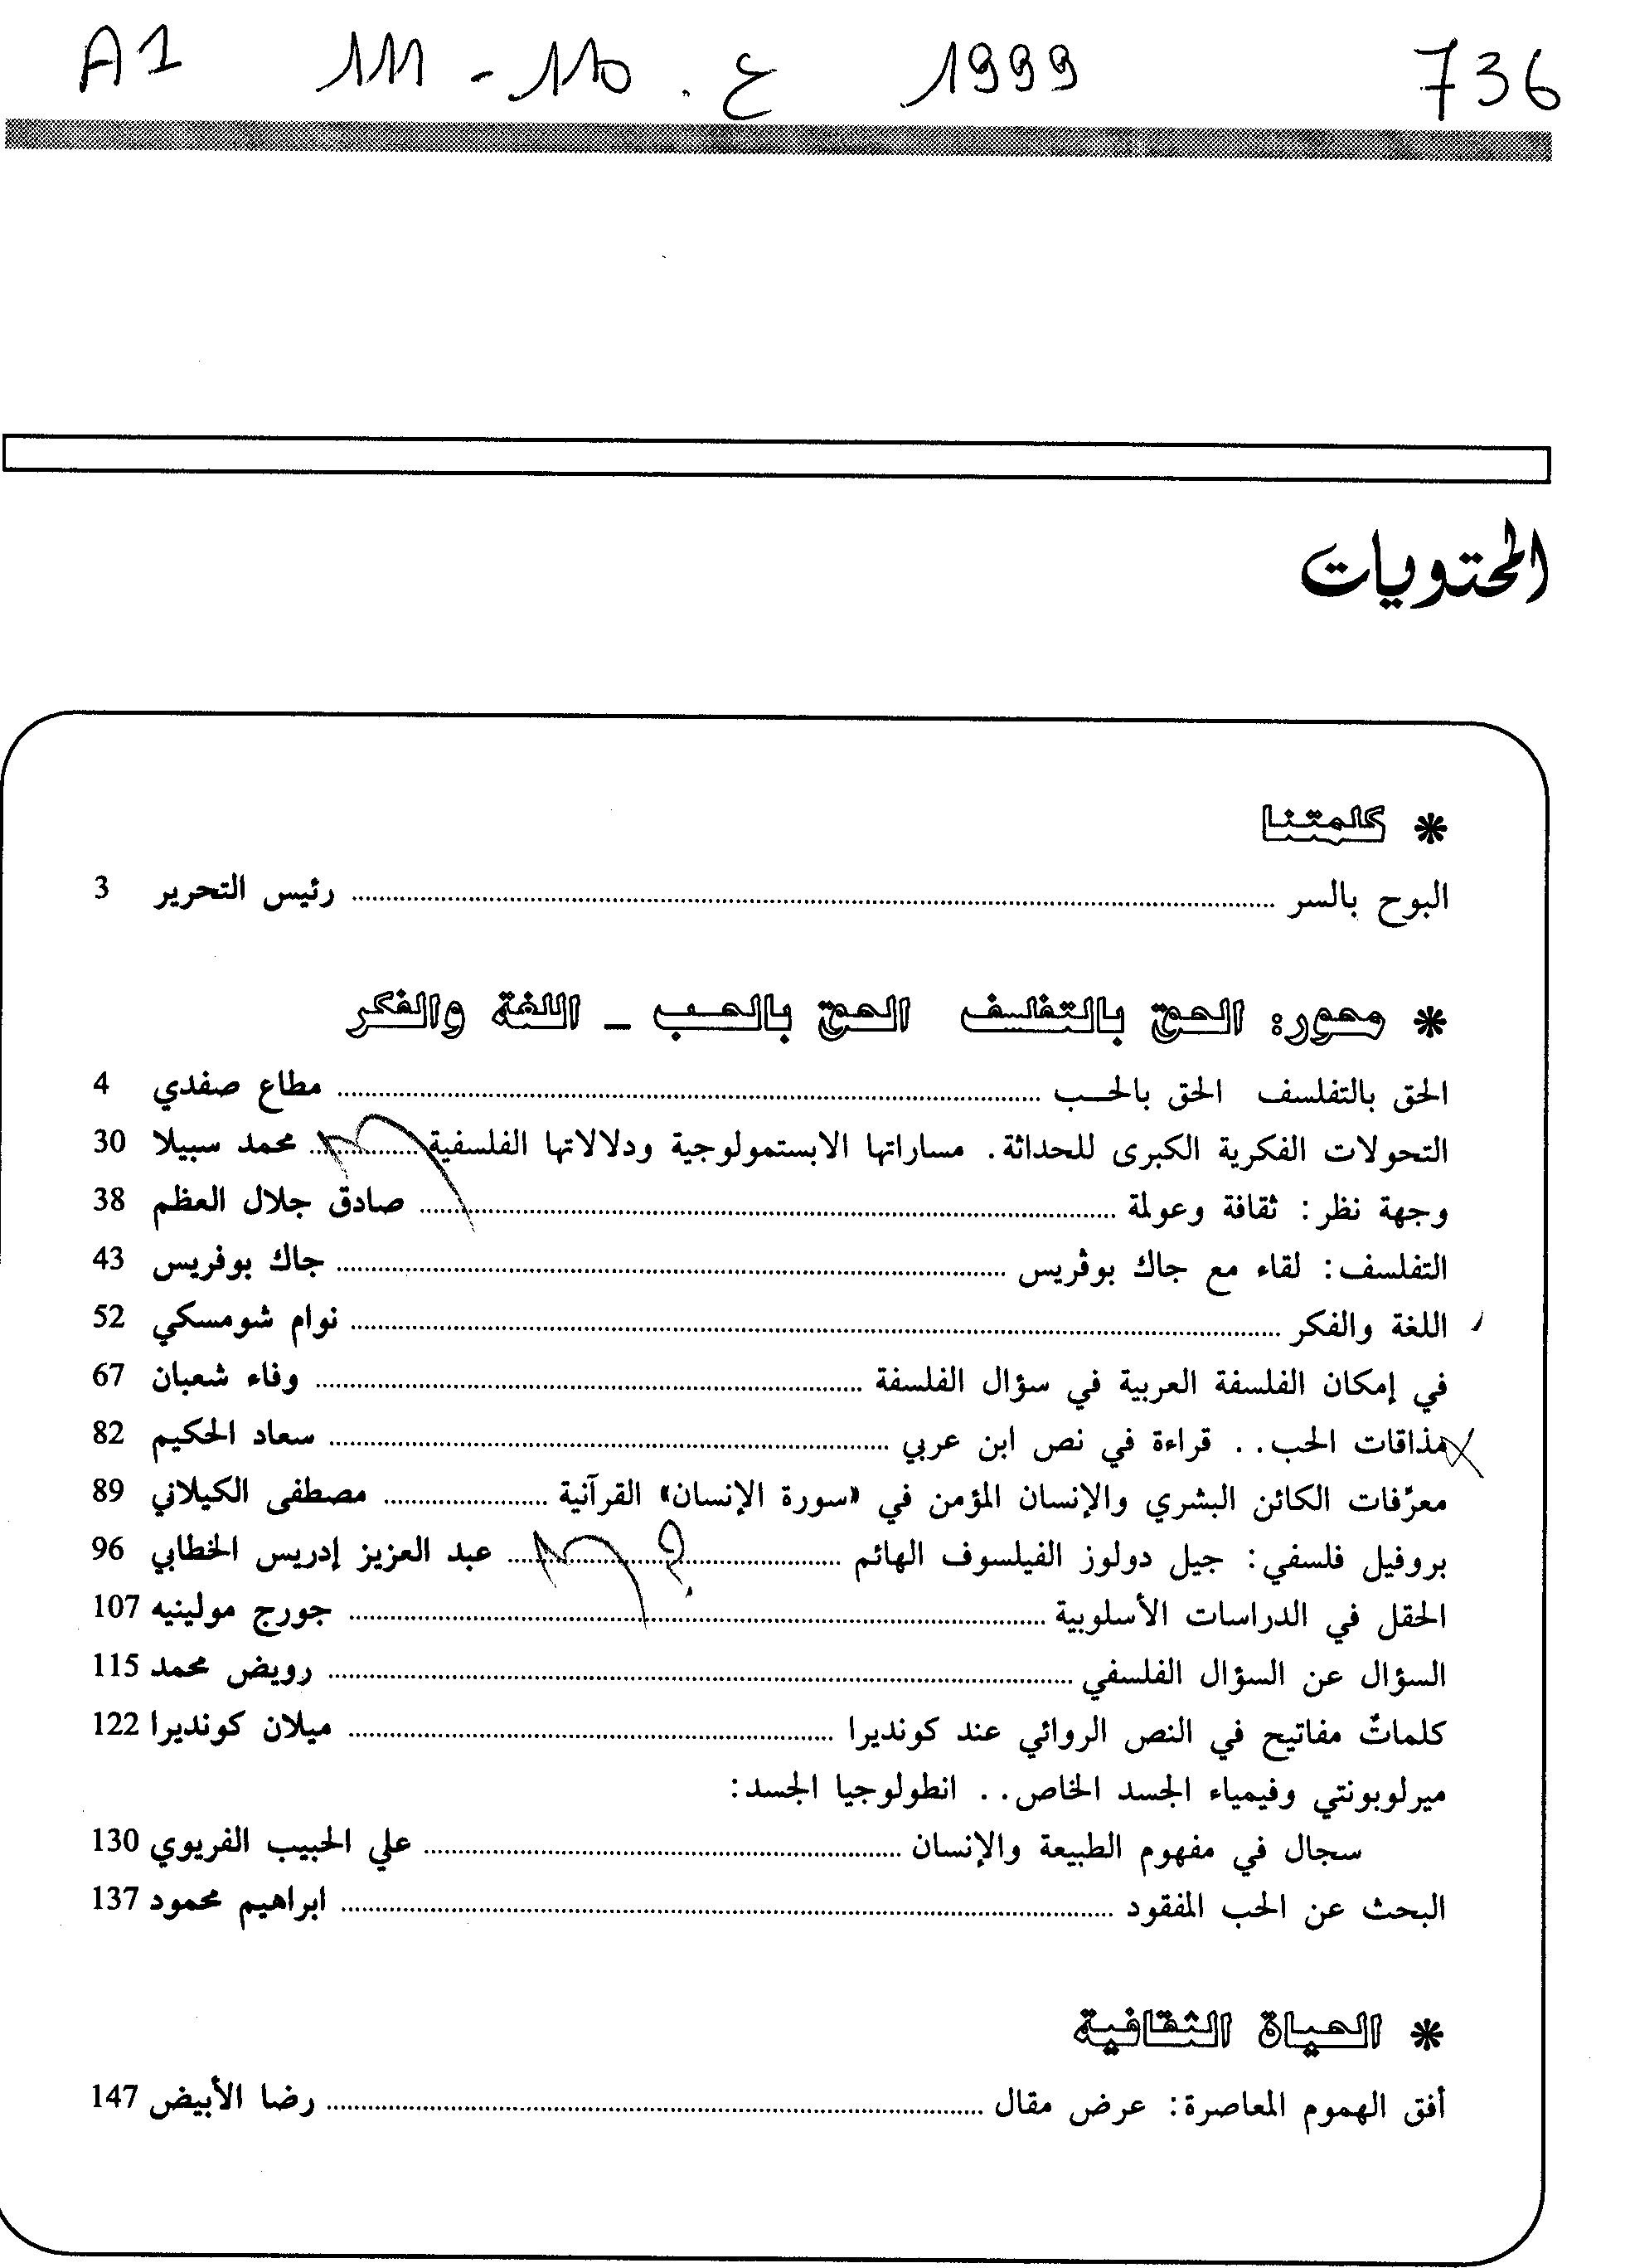 A1 111 - 110 . ع 1999 736
المحتويات
* كلمتنا
البوح بالسر ........ رئيس التحرير 3
* محور: الحق بالتفلسف الحق بالحب ـ اللغة والفكر
الحق بالتفلسف الحق بالحـب ........ مطاع صفدي 4
التحولات الفكرية الكبرى للحداثة. مساراتها الابستمولوجية ودلالاتها الفلسفية ........ محمد سبيلا 30
وجهة نظر: ثقافة وعولمة ........ صادق جلال العظم 38
التفلسف: لقاء مع جاك بوڤريس ........ جاك بوفريس 43
اللغة والفكر ........ نوام شومسكي 52
في إمكان الفلسفة العربية في سؤال الفلسفة ........ وفاء شعبان 67
مذاقات الحب.. قراءة في نص ابن عربي ........ سعاد الحكيم 82
معرّفات الكائن البشري والإنسان المؤمن في «سورة الإنسان» القرآنية ........ مصطفى الكيلاني 89
بروفيل فلسفي: جيل دولوز الفيلسوف الهائم ........ عبد العزيز إدريس الخطابي 96
الحقل في الدراسات الأسلوبية ........ جورج مولينيه 107
السؤال عن السؤال الفلسفي ........ رويض محمد 115
كلماتٌ مفاتيح في النص الروائي عند كونديرا ........ ميلان كونديرا 122
ميرلوبونتي وفيمياء الجسد الخاص.. انطولوجيا الجسد:
سجال في مفهوم الطبيعة والإنسان ........ علي الحبيب الفريوي 130
البحث عن الحب المفقود ........ ابراهيم محمود 137
* الحياة الثقافية
أفق الهموم المعاصرة: عرض مقال ........ رضا الأبيض 147